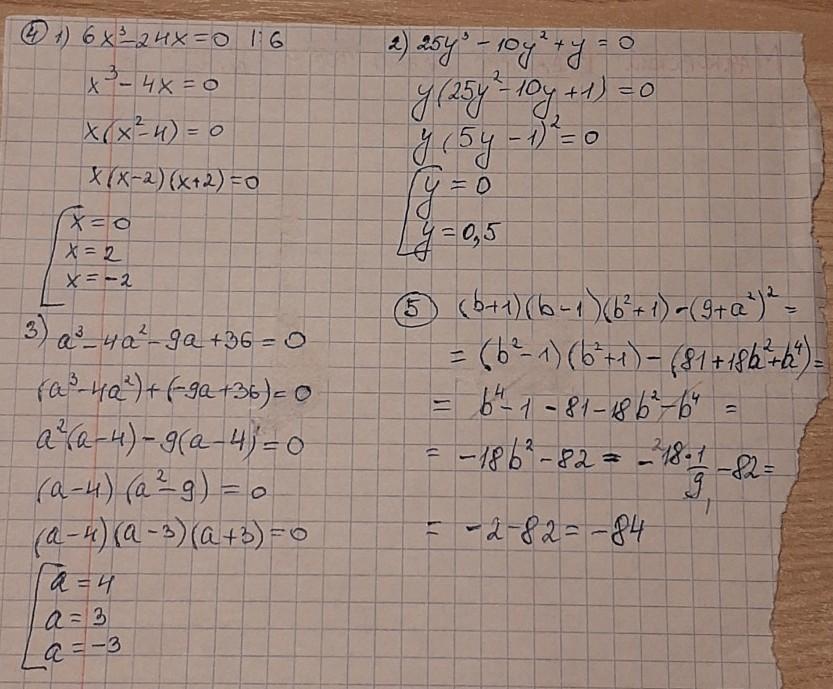 ④ 1) 6x³-24x=0 |:6
x³-4x=0
x(x²-4)=0
x(x-2)(x+2)=0
x=0
x=2
x=-2
2) 25y³-10y²+y=0
y(25y²-10y+1)=0
y(5y-1)²=0
y=0
y=0,5
3) a³-4a²-9a+36=0
(a³-4a²)+(-9a+36)=0
a²(a-4)-9(a-4)=0
(a-4)(a²-9)=0
(a-4)(a-3)(a+3)=0
a=4
a=3
a=-3
⑤ (b+1)(b-1)(b²+1)-(9+a²)²=
=(b²-1)(b²+1)-(81+18b²+b⁴)=
= b⁴-1-81-18b²-b⁴ =
= -18b²-82 = -²18·1/9₁-82=
= -2-82=-84